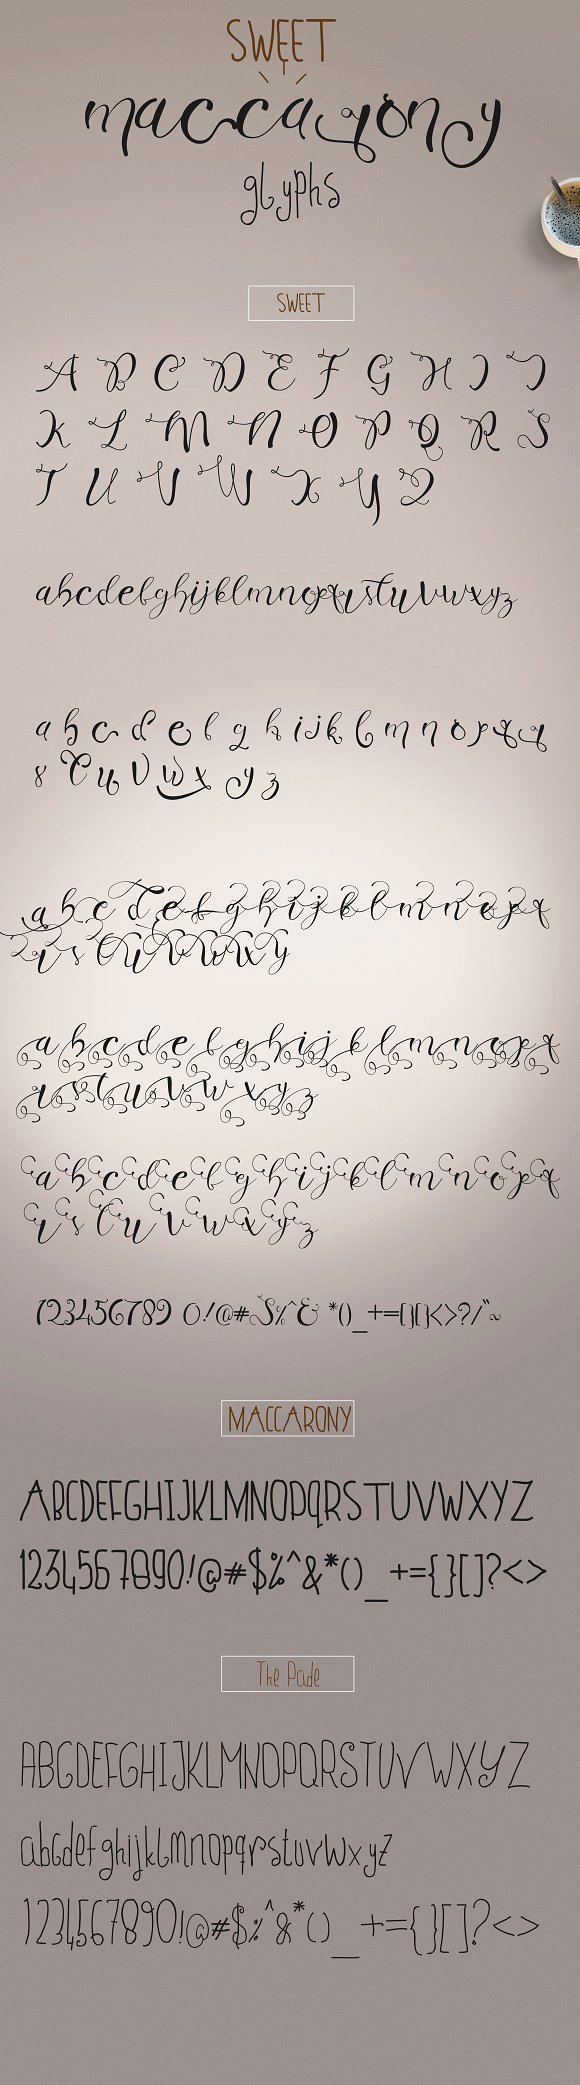 SWEET
maccarony
glyphs
SWEET
A B C D E F G H I J
K L M N O P Q R S
T U V W X Y Z
abcdefghijklmnopqrstuvwxyz
a b c d e f g h i j k l m n o p q r
s t u v w x y z
a b c d e f g h i j k l m n o p q
r s t u v w x y
a b c d e f g h i j k l m n o p q
r s t u v w x y z
a b c d e f g h i j k l m n o p q
r s t u v w x y z
123456789 0!@#$%^& *()_+=[]{}<>?/"~
MACCARONY
ABCDEFGHIJKLMNOPQRSTUVWXYZ
1234567890!@#$%^&*()_+={}[]?<>
The Pade
ABCDEFGHIJKLMNOPQRSTUVWXYZ
abcdefghijklmnopqrstuvwxyz
1234567890!@#$%^&*()_+={}[]?<>